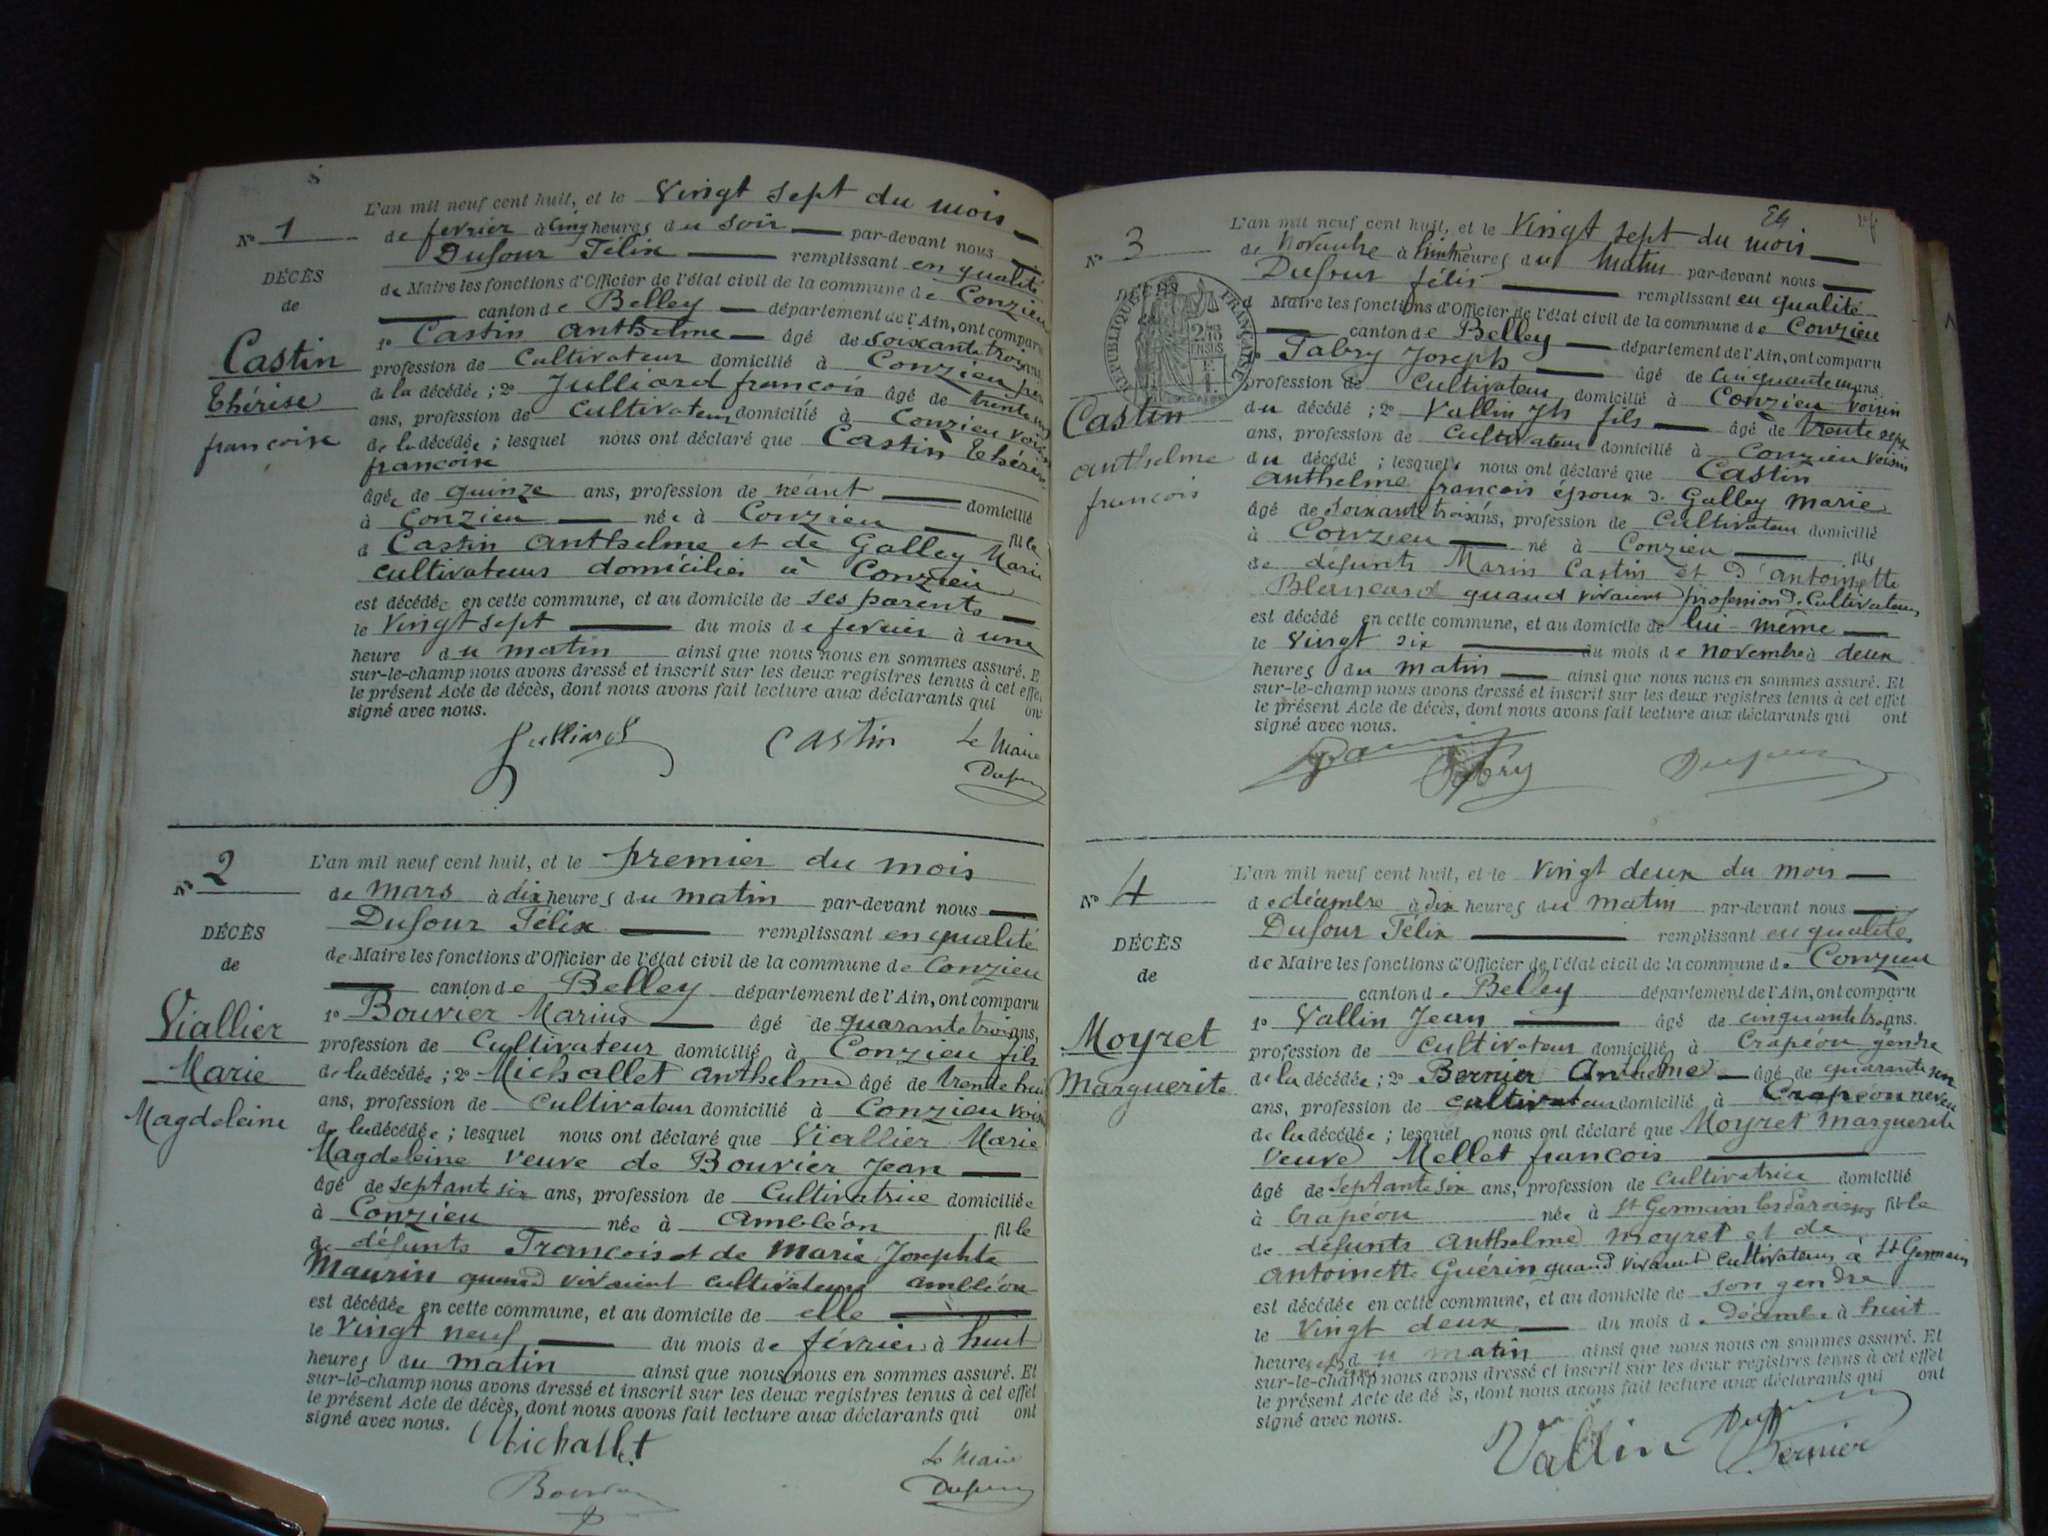 L'an mil neuf cent huit, et le Vingt sept du mois
N° 1
de fevrier à cinq heures du soir par-devant nous
Dufour Félix remplissant en qualité
DÉCÈS
de Maire les fonctions d'Officier de l'état civil de la commune de Conzieu
de
canton de Belley département de l'Ain, ont comparu
1° Castin Anthelme âgé de soixante trois ans,
Castin
profession de Cultivateur domicilié à Conzieu père
de la décédée ; 2° Julliard françois âgé de trente
Thérèse
ans, profession de Cultivateur domicilié à Conzieu voisin
françoise
de la décédée ; lesquel nous ont déclaré que Castin Thérèse
françoise
âgée de quinze ans, profession de néant domicilié
à Conzieu née à Conzieu fille
d Castin Anthelme et de Galley Marie
cultivateurs domiciliés à Conzieu
est décédée en cette commune, et au domicile de ses parents
le Vingt sept du mois de fevrier à une
heure du matin ainsi que nous nous en sommes assuré. E
sur-le-champ nous avons dressé et inscrit sur les deux registres tenus à cet effe
le présent Acte de décès, dont nous avons fait lecture aux déclarants qui on
signé avec nous.
Julliard Castin Le Maire
Dufour
L'an mil neuf cent huit, et le premier du mois
N° 2
de mars à dix heures du matin par-devant nous
Dufour Félix remplissant en qualité
DÉCÈS
de Maire les fonctions d'Officier de l'état civil de la commune de Conzieu
de
canton de Belley département de l'Ain, ont comparu
1° Bouvier Marius âgé de quarante trois ans,
Viallier
profession de Cultivateur domicilié à Conzieu fils
Marie
de la décédée ; 2° Michallet Anthelme âgé de trente huit
ans, profession de Cultivateur domicilié à Conzieu voisin
Magdeleine
de la décédée ; lesquel nous ont déclaré que Viallier Marie
Magdeleine veuve de Bouvier Jean
âgé de septante six ans, profession de Cultivatrice domiciliée
à Conzieu née à Ambléon fille
de défunts François et de Marie Josephte
Maurin quand vivaient cultivateurs Ambléon
est décédée en cette commune, et au domicile de elle
le Vingt neuf du mois de février à huit
heures du matin ainsi que nous nous en sommes assuré. Et
sur-le-champ nous avons dressé et inscrit sur les deux registres tenus à cet effet
le présent Acte de décès, dont nous avons fait lecture aux déclarants qui ont
signé avec nous.
Michallet
Le Maire
Dufour
24
L'an mil neuf cent huit, et le Vingt sept du mois
N° 3
de Novembre à huit heures du matin par-devant nous
Dufour félix remplissant en qualité
DÉCÈS
RÉPUBLIQUE FRANÇAISE
d Maire les fonctions d'Officier de l'état civil de la commune de Conzieu
canton de Belley département de l'Ain, ont comparu
1° Fabry Joseph âgé de cinquante un ans,
profession de Cultivateur domicilié à Conzieu voisin
Castin
du décédé ; 2° Vallin Jh fils âgé de trente sept
ans, profession de Cultivateur domicilié à Conzieu voisin
anthelme
du décédé ; lesquels nous ont déclaré que Castin
françois
Anthelme françois époux d. Galley Marie
âgé de soixante trois ans, profession de Cultivateur domicilié
à Conzieu né à Conzieu fils
de défunts Marin Castin et d'antoinette
Blancard quand vivaient profession d. Cultivateurs
est décédé en cette commune, et au domicile de lui-même
le Vingt six du mois de novembre à deux
heures du matin ainsi que nous nous en sommes assuré. Et
sur-le-champ nous avons dressé et inscrit sur les deux registres tenus à cet effet
le présent Acte de décès, dont nous avons fait lecture aux déclarants qui ont
signé avec nous.
Fabry Dufour
L'an mil neuf cent huit, et le Vingt deux du mois
N° 4
de décembre à dix heures du matin par-devant nous
Dufour Félix remplissant en qualité
DÉCÈS
de Maire les fonctions d'Officier de l'état civil de la commune de Conzieu
de
canton de Belley département de l'Ain, ont comparu
1° Vallin Jean âgé de cinquante trois ans.
Moyret
profession de cultivateur domicilié à Crapéou gendre
Marguerite
de la décédée ; 2° Bernier Anthelme âgé de quarante
ans, profession de cultivateur domicilié à Crapéou neveu
de la décédée ; lesquel nous ont déclaré que Moyret Marguerite
veuve Mellet françois
âgé de septante six ans, profession de Cultivatrice domicilié
à Crapéou née à St Germain les Paroisses fille
de défunts Anthelme Moyret et de
Antoinette Guérin quand vivaient cultivateurs à St Germain
est décédée en cette commune, et au domicile de son gendre
le Vingt deux du mois d. décembre à huit
heures du matin ainsi que nous nous en sommes assuré. Et
sur-le-champ nous avons dressé et inscrit sur les deux registres tenus à cet effet
le présent Acte de décès, dont nous avons fait lecture aux déclarants qui ont
signé avec nous.
Vallin Dufour
Bernier